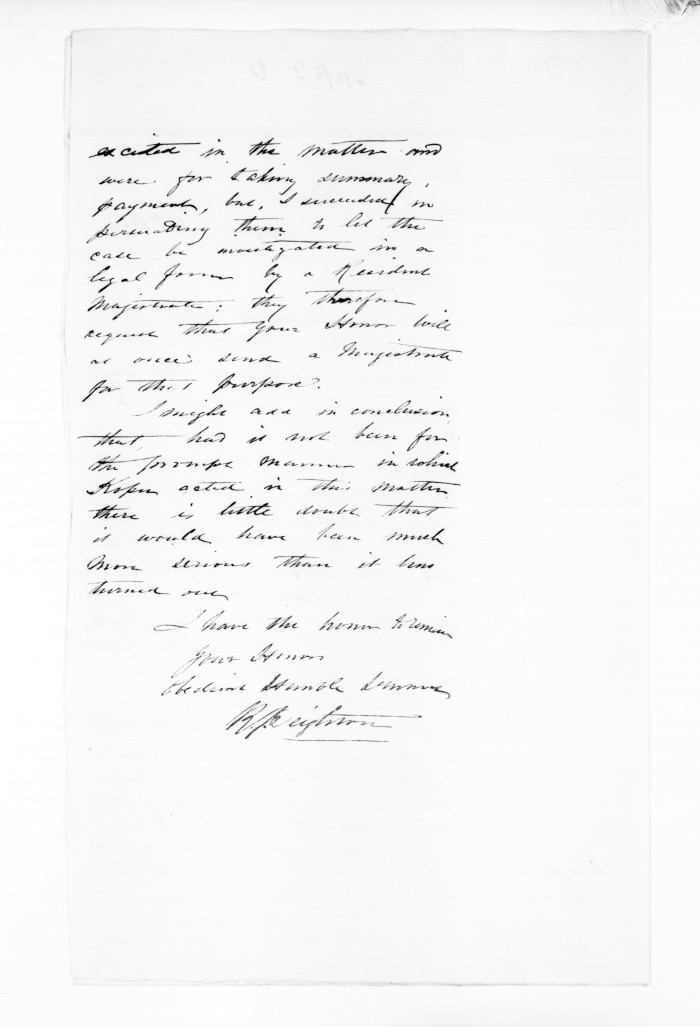 excited in the matter and
were for taking summary
payment, but, I succeeded in
persuading them to let the
case be investigated in a
legal form by a Resident
Magistrate; they therefore
request that Your Honor will
at once send a Magistrate
for that purpose.
I might add in conclusion
that, had it not been for
the prompt manner in which
Kopu acted in this matter
there is little doubt that
it would have been much
more serious than it has
turned out
I have the honor to remain
Your Honors
Obedient Humble Servant